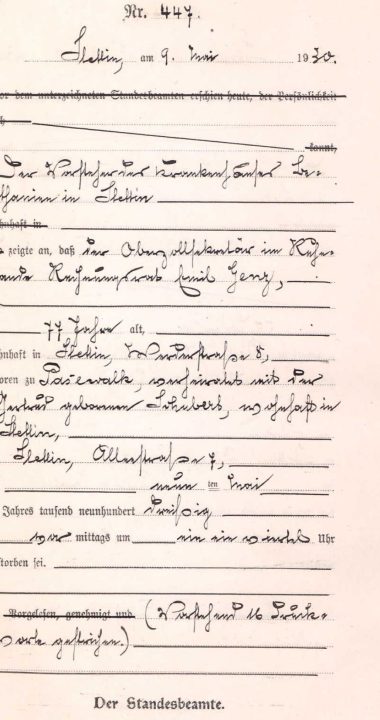 Nr. 447.
Stettin, am 9. Mai 1930.
or dem unterzeichneten Standesbeamten erschien heute, der Persönlichkeit
h
kannt,
Der Vorsteher des Krankenhauses Be-
thanien in Stettin
hnhaft in
zeigte an, daß der Oberzollsekretär im Ruhe-
ande Rechnungsrat Emil Genz,
77 Jahre alt,
hnhaft in Stettin, Werderstraße 8,
oren zu Pasewalk, verheiratet mit der
Gertrud geborenen Schubert, wohnhaft in
Stettin,
Stettin, Alleestraße 7,
neun ten Mai
Jahres tausend neunhundert dreißig
vor mittags um ein ein viertel Uhr
storben sei.
Vorgelesen, genehmigt und (Vorstehend 16 Druck-
worte gestrichen.)
Der Standesbeamte.